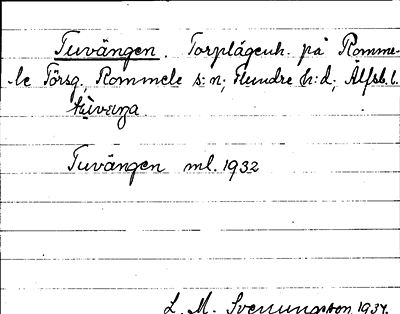 Tuvängen. Torplägenh. på Romme-
le Törsg., Rommele s:n; Flundre h:d; Älfsb. l.
Tuvängen ml. 1932
L. M. Svenungsson 1934.